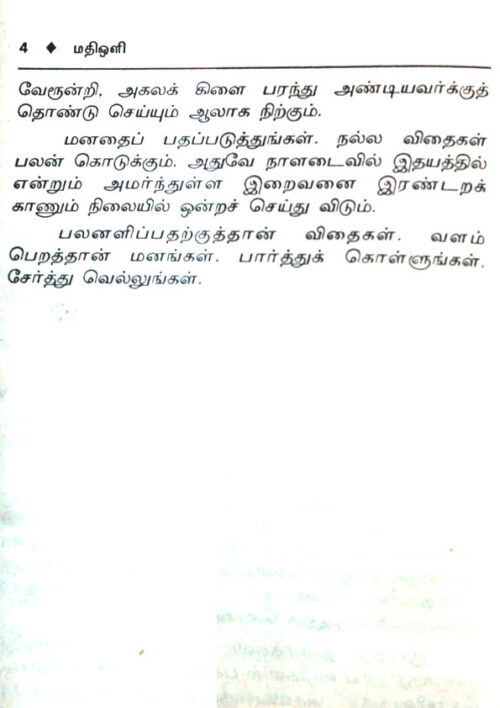 4 ◆ மதிஒளி
வேரூன்றி, அகலக் கிளை பரந்து அண்டியவர்க்குத்
தொண்டு செய்யும் ஆலாக நிற்கும்.
மனதைப் பதப்படுத்துங்கள். நல்ல விதைகள்
பலன் கொடுக்கும். அதுவே நாளடைவில் இதயத்தில்
என்றும் அமர்ந்துள்ள இறைவனை இரண்டறக்
காணும் நிலையில் ஒன்றச் செய்து விடும்.
பலனளிப்பதற்குத்தான் விதைகள். வளம்
பெறத்தான் மனங்கள். பார்த்துக் கொள்ளுங்கள்.
சேர்த்து வெல்லுங்கள்.